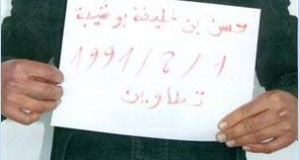 حسن بن خليفة بوشيبة
1991/2/1
تطاوين